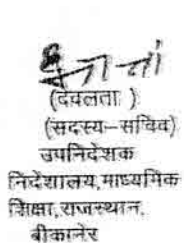 (देवलता )
(सदस्य–सचिव)
उपनिदेशक
निदेशालय, माध्यमिक
शिक्षा, राजस्थान,
बीकानेर